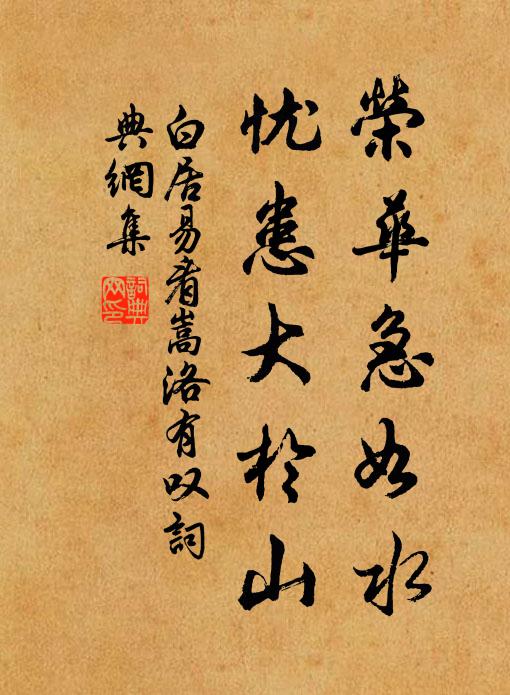 榮華急如水
忧患大於山
白居易看嵩洛有叹詞
典網集
詞典网印